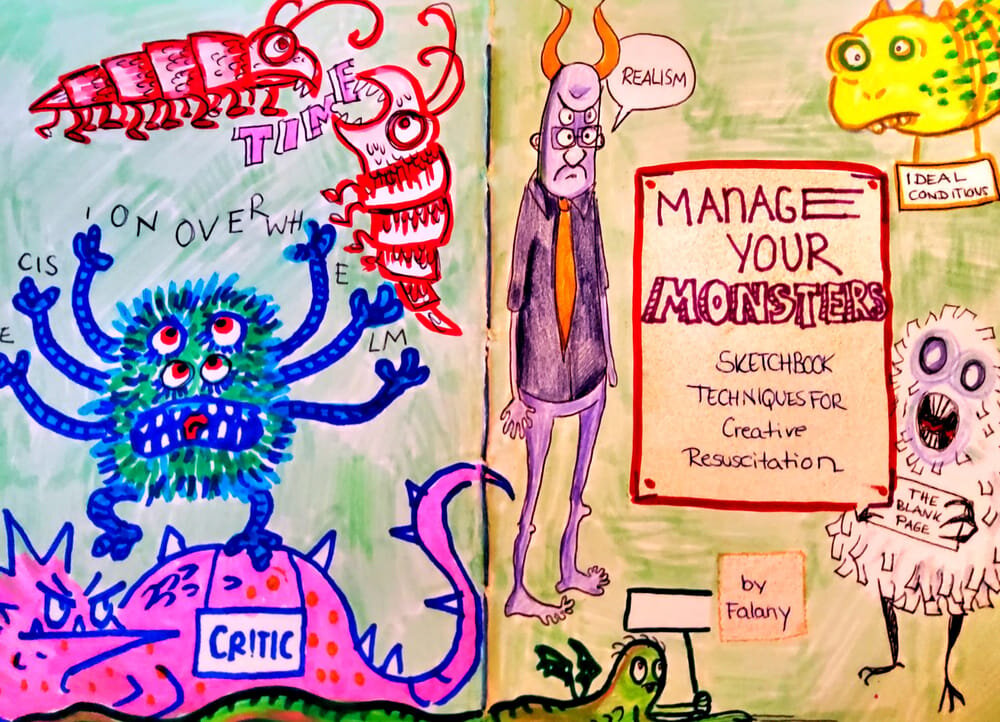 TIME
E
CIS
' ON OVERWH
E
LM
CRITIC
REALISM
MANAGE
YOUR
MONSTERS
SKETCHBOOK
TECHNIQUES FOR
Creative
Resuscitation
by
Falany
IDEAL
CONDITIONS
THE
BLANK
PAGE